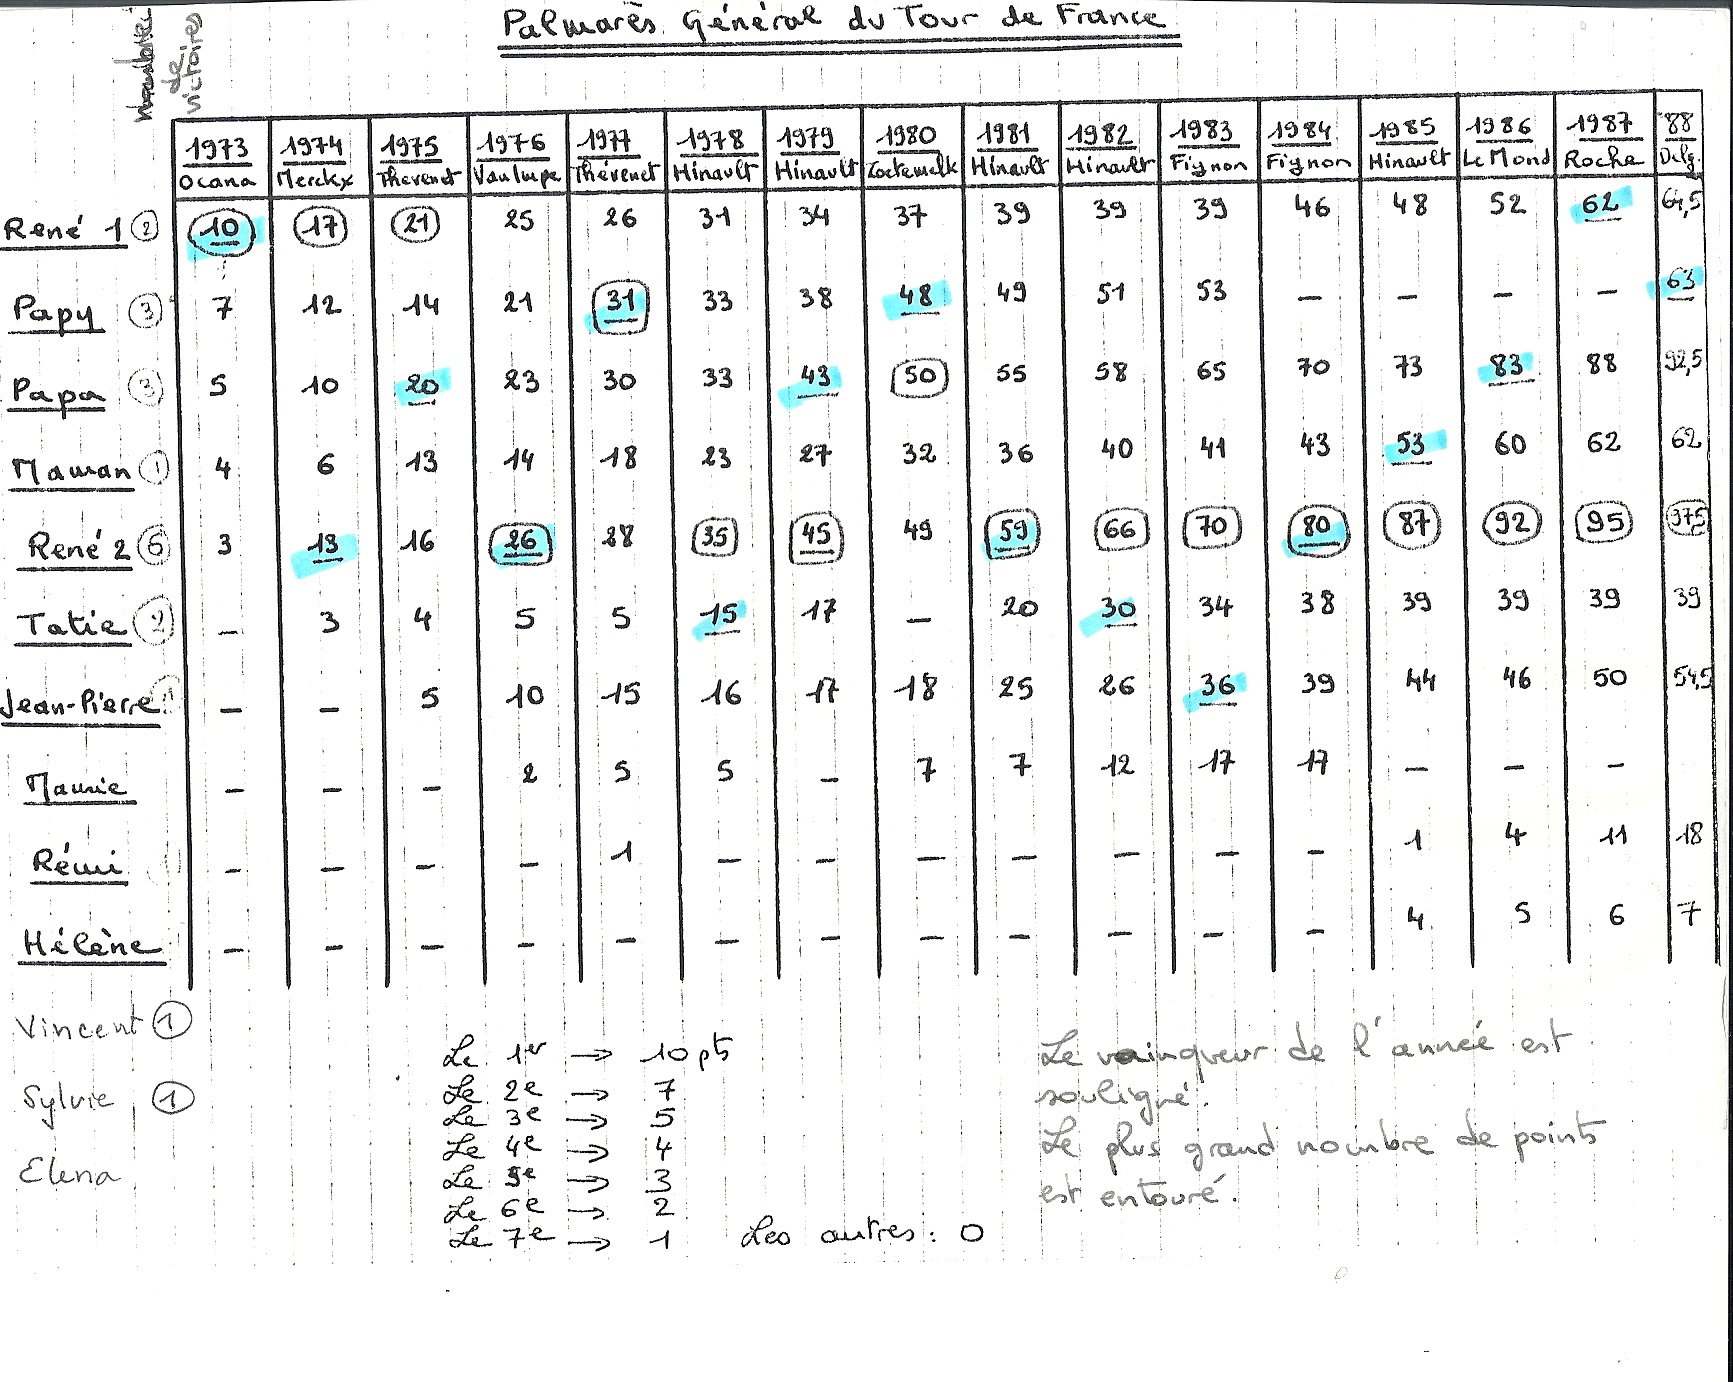 Palmarès Général du Tour de France
de victoires
1973 1974 1975 1976 1977 1978 1979 1980 1981 1982 1983 1984 1985 1986 1987 88
Ocana Merckx Thévenet Van Impe Thévenet Hinault Hinault Zoetemelk Hinault Hinault Fignon Fignon Hinault Le Mond Roche Delg.
René 1 2 10 17 21 25 26 31 34 37 39 39 39 46 48 52 62 64,5
Papy 3 7 12 14 21 31 33 38 48 49 51 53 — — — — 63
Papa 3 5 10 20 23 30 33 43 50 55 58 65 70 73 83 88 92,5
Maman 1 4 6 13 14 18 23 27 32 36 40 41 43 53 60 62 62
René 2 6 3 13 16 26 28 35 45 49 59 66 70 80 87 92 95 97,5
Tatie 2 — 3 4 5 5 15 17 — 20 30 34 38 39 39 39 39
Jean-Pierre 1 — — 5 10 15 16 17 18 25 26 36 39 44 46 50 54,5
Mamie — — — 2 5 5 — 7 7 12 17 17 — — —
Rémi — — — — 1 — — — — — — — 1 4 11 18
Hélène — — — — — — — — — — — — 4 5 6 7
Vincent 1
Sylvie 1
Elena
Le 1er → 10 pts
Le 2e → 7
Le 3e → 5
Le 4e → 4
Le 5e → 3
Le 6e → 2
Le 7e → 1 Les autres : 0
Le vainqueur de l'année est
souligné.
Le plus grand nombre de points
est entouré.